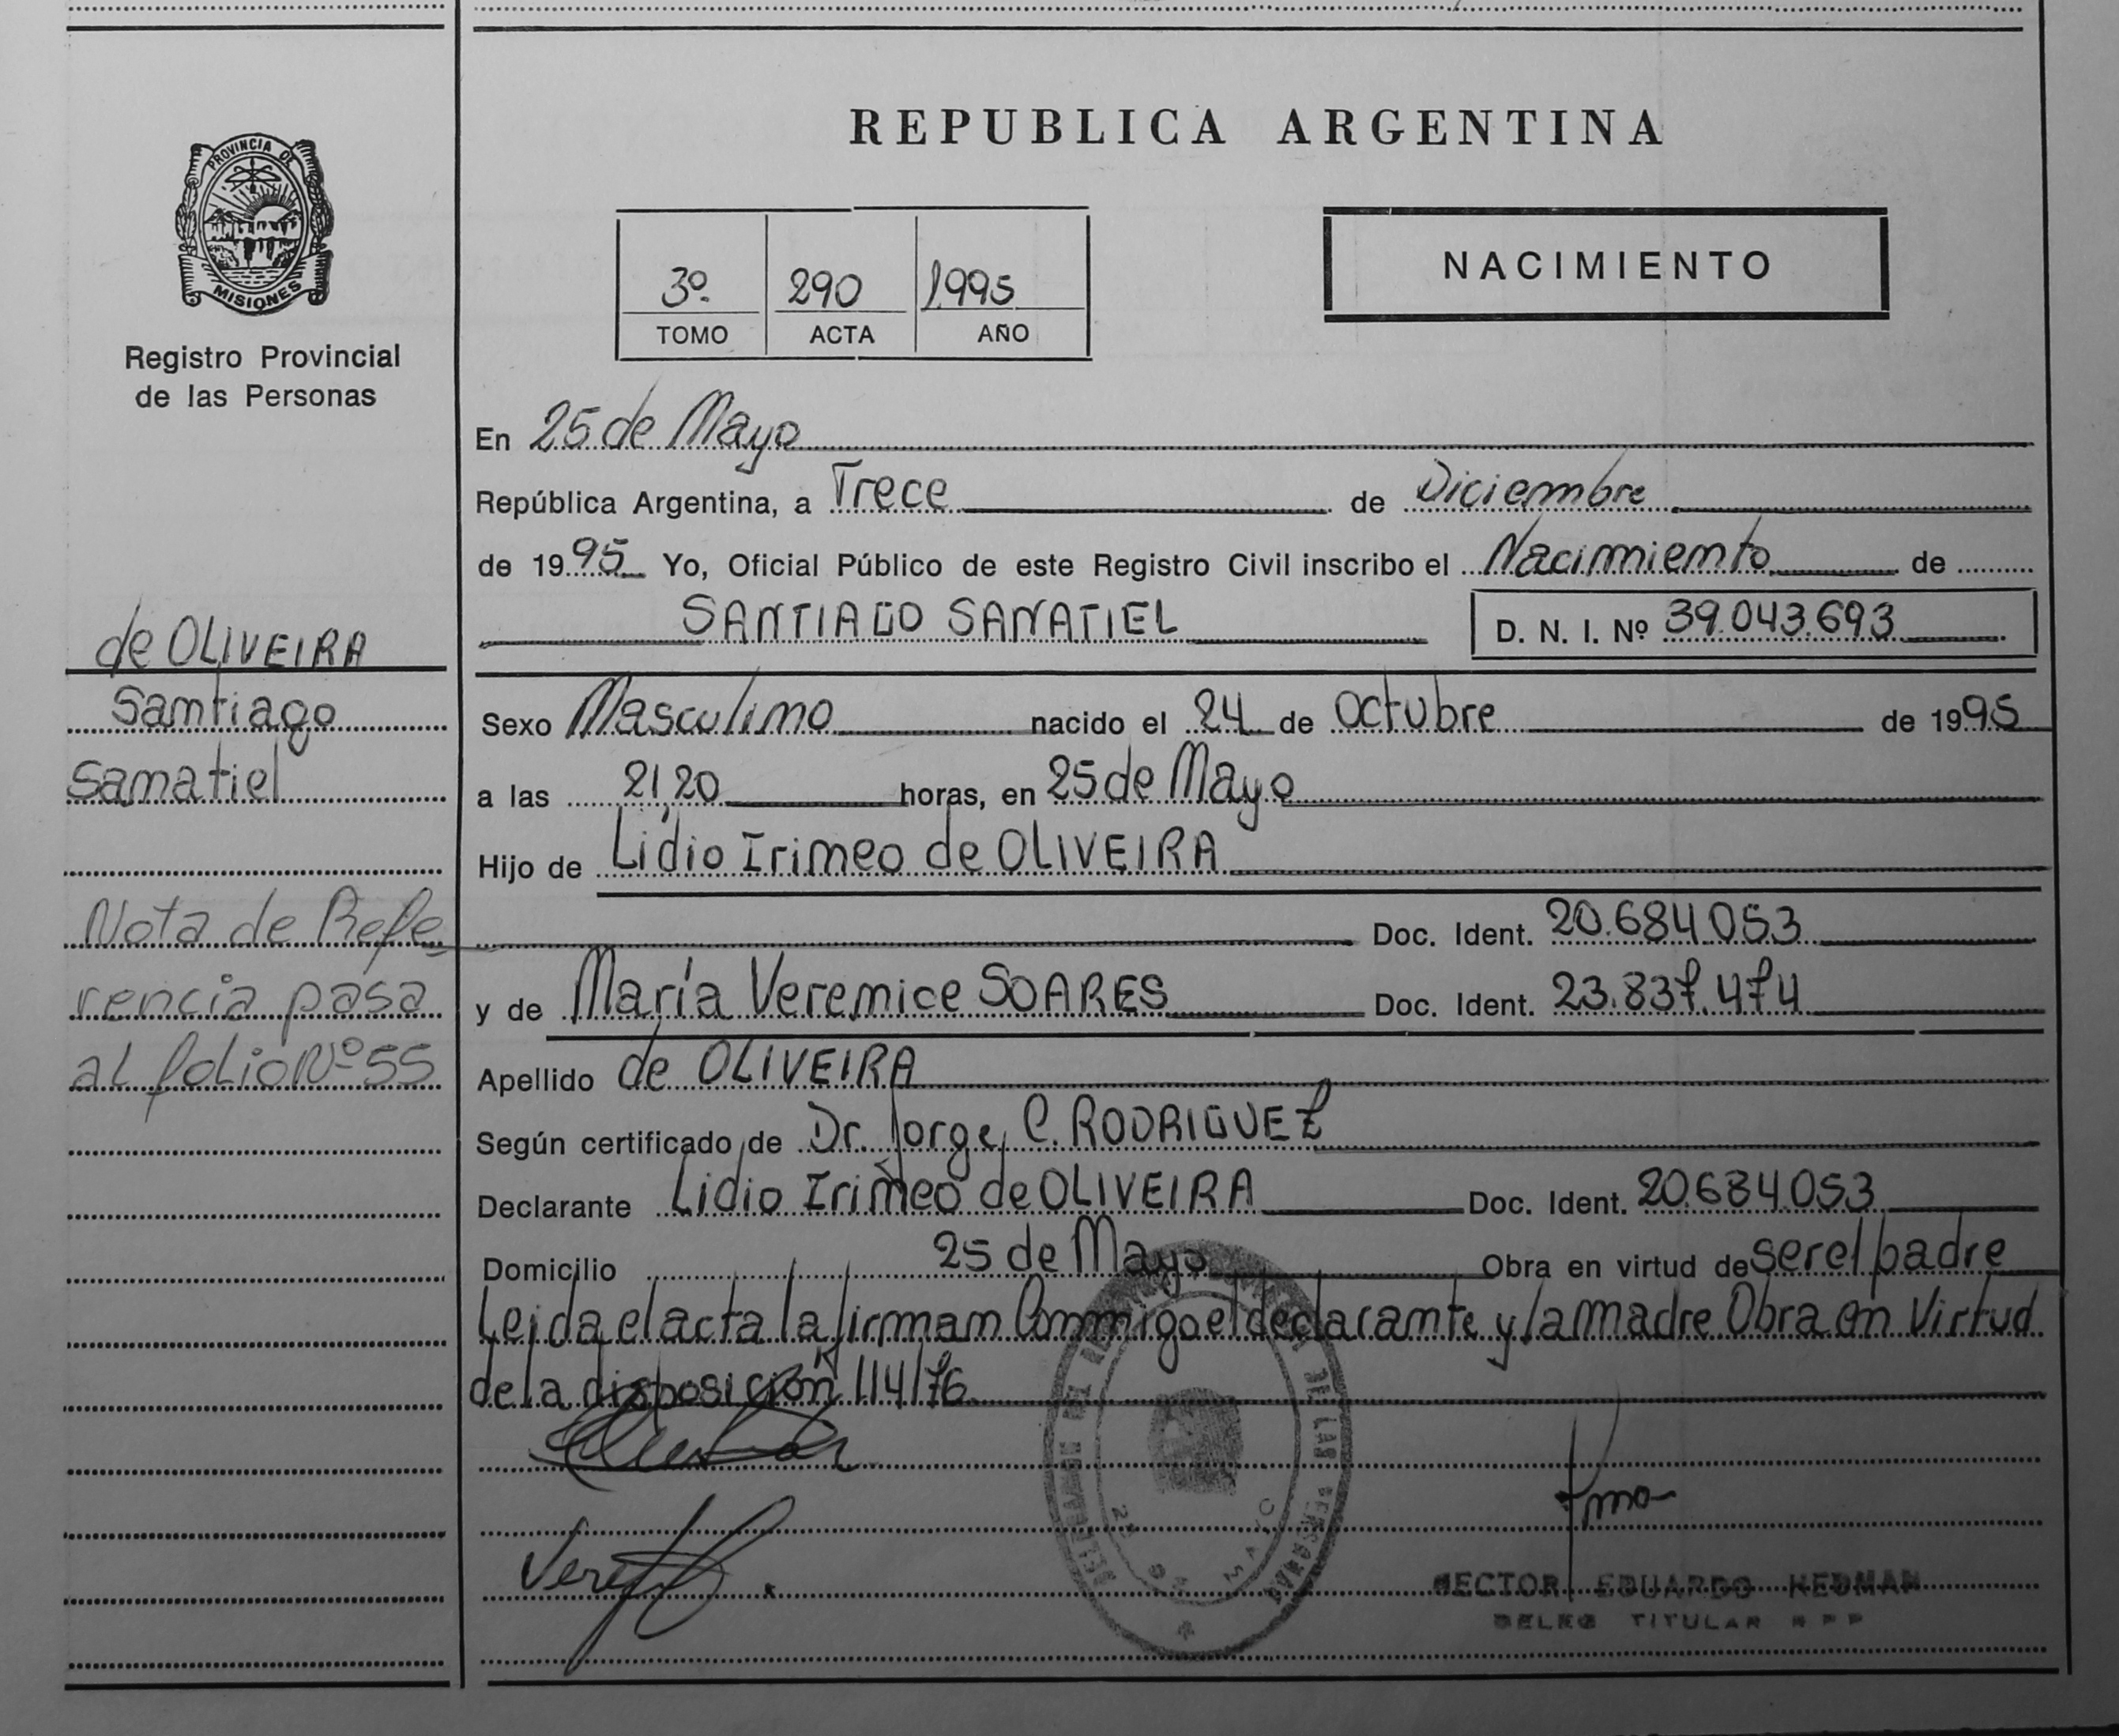 PROVINCIA DE
MISIONES
Registro Provincial
de las Personas
de OLIVEIRA
Santiago
Sanatiel
Nota de Refe
rencia pasa
al folio Nº 55
REPUBLICA ARGENTINA
3º 290 1995
TOMO ACTA AÑO
NACIMIENTO
En 25 de Mayo
República Argentina, a Trece de Diciembre
de 1995 Yo, Oficial Público de este Registro Civil inscribo el Nacimiento de
SANTIAGO SANATIEL D. N. I. Nº 39.043.693
Sexo Masculino nacido el 24 de Octubre de 1995
a las 21,20 horas, en 25 de Mayo
Hijo de Lidio Irineo de OLIVEIRA
Doc. Ident. 20.684.053
y de María Verenice SOARES Doc. Ident. 23.837.474
Apellido de OLIVEIRA
Según certificado de Dr. Jorge C. RODRIGUEZ
Declarante Lidio Irineo de OLIVEIRA Doc. Ident. 20.684.053
Domicilio 25 de Mayo Obra en virtud de ser el padre
Leida el acta la firman Conmigo el declarante y la madre Obra en Virtud
de la disposición 114/76
DE LAS PERSONAS
25 DE MAYO
HECTOR EDUARDO HEDMAN
DELEG TITULAR R P P